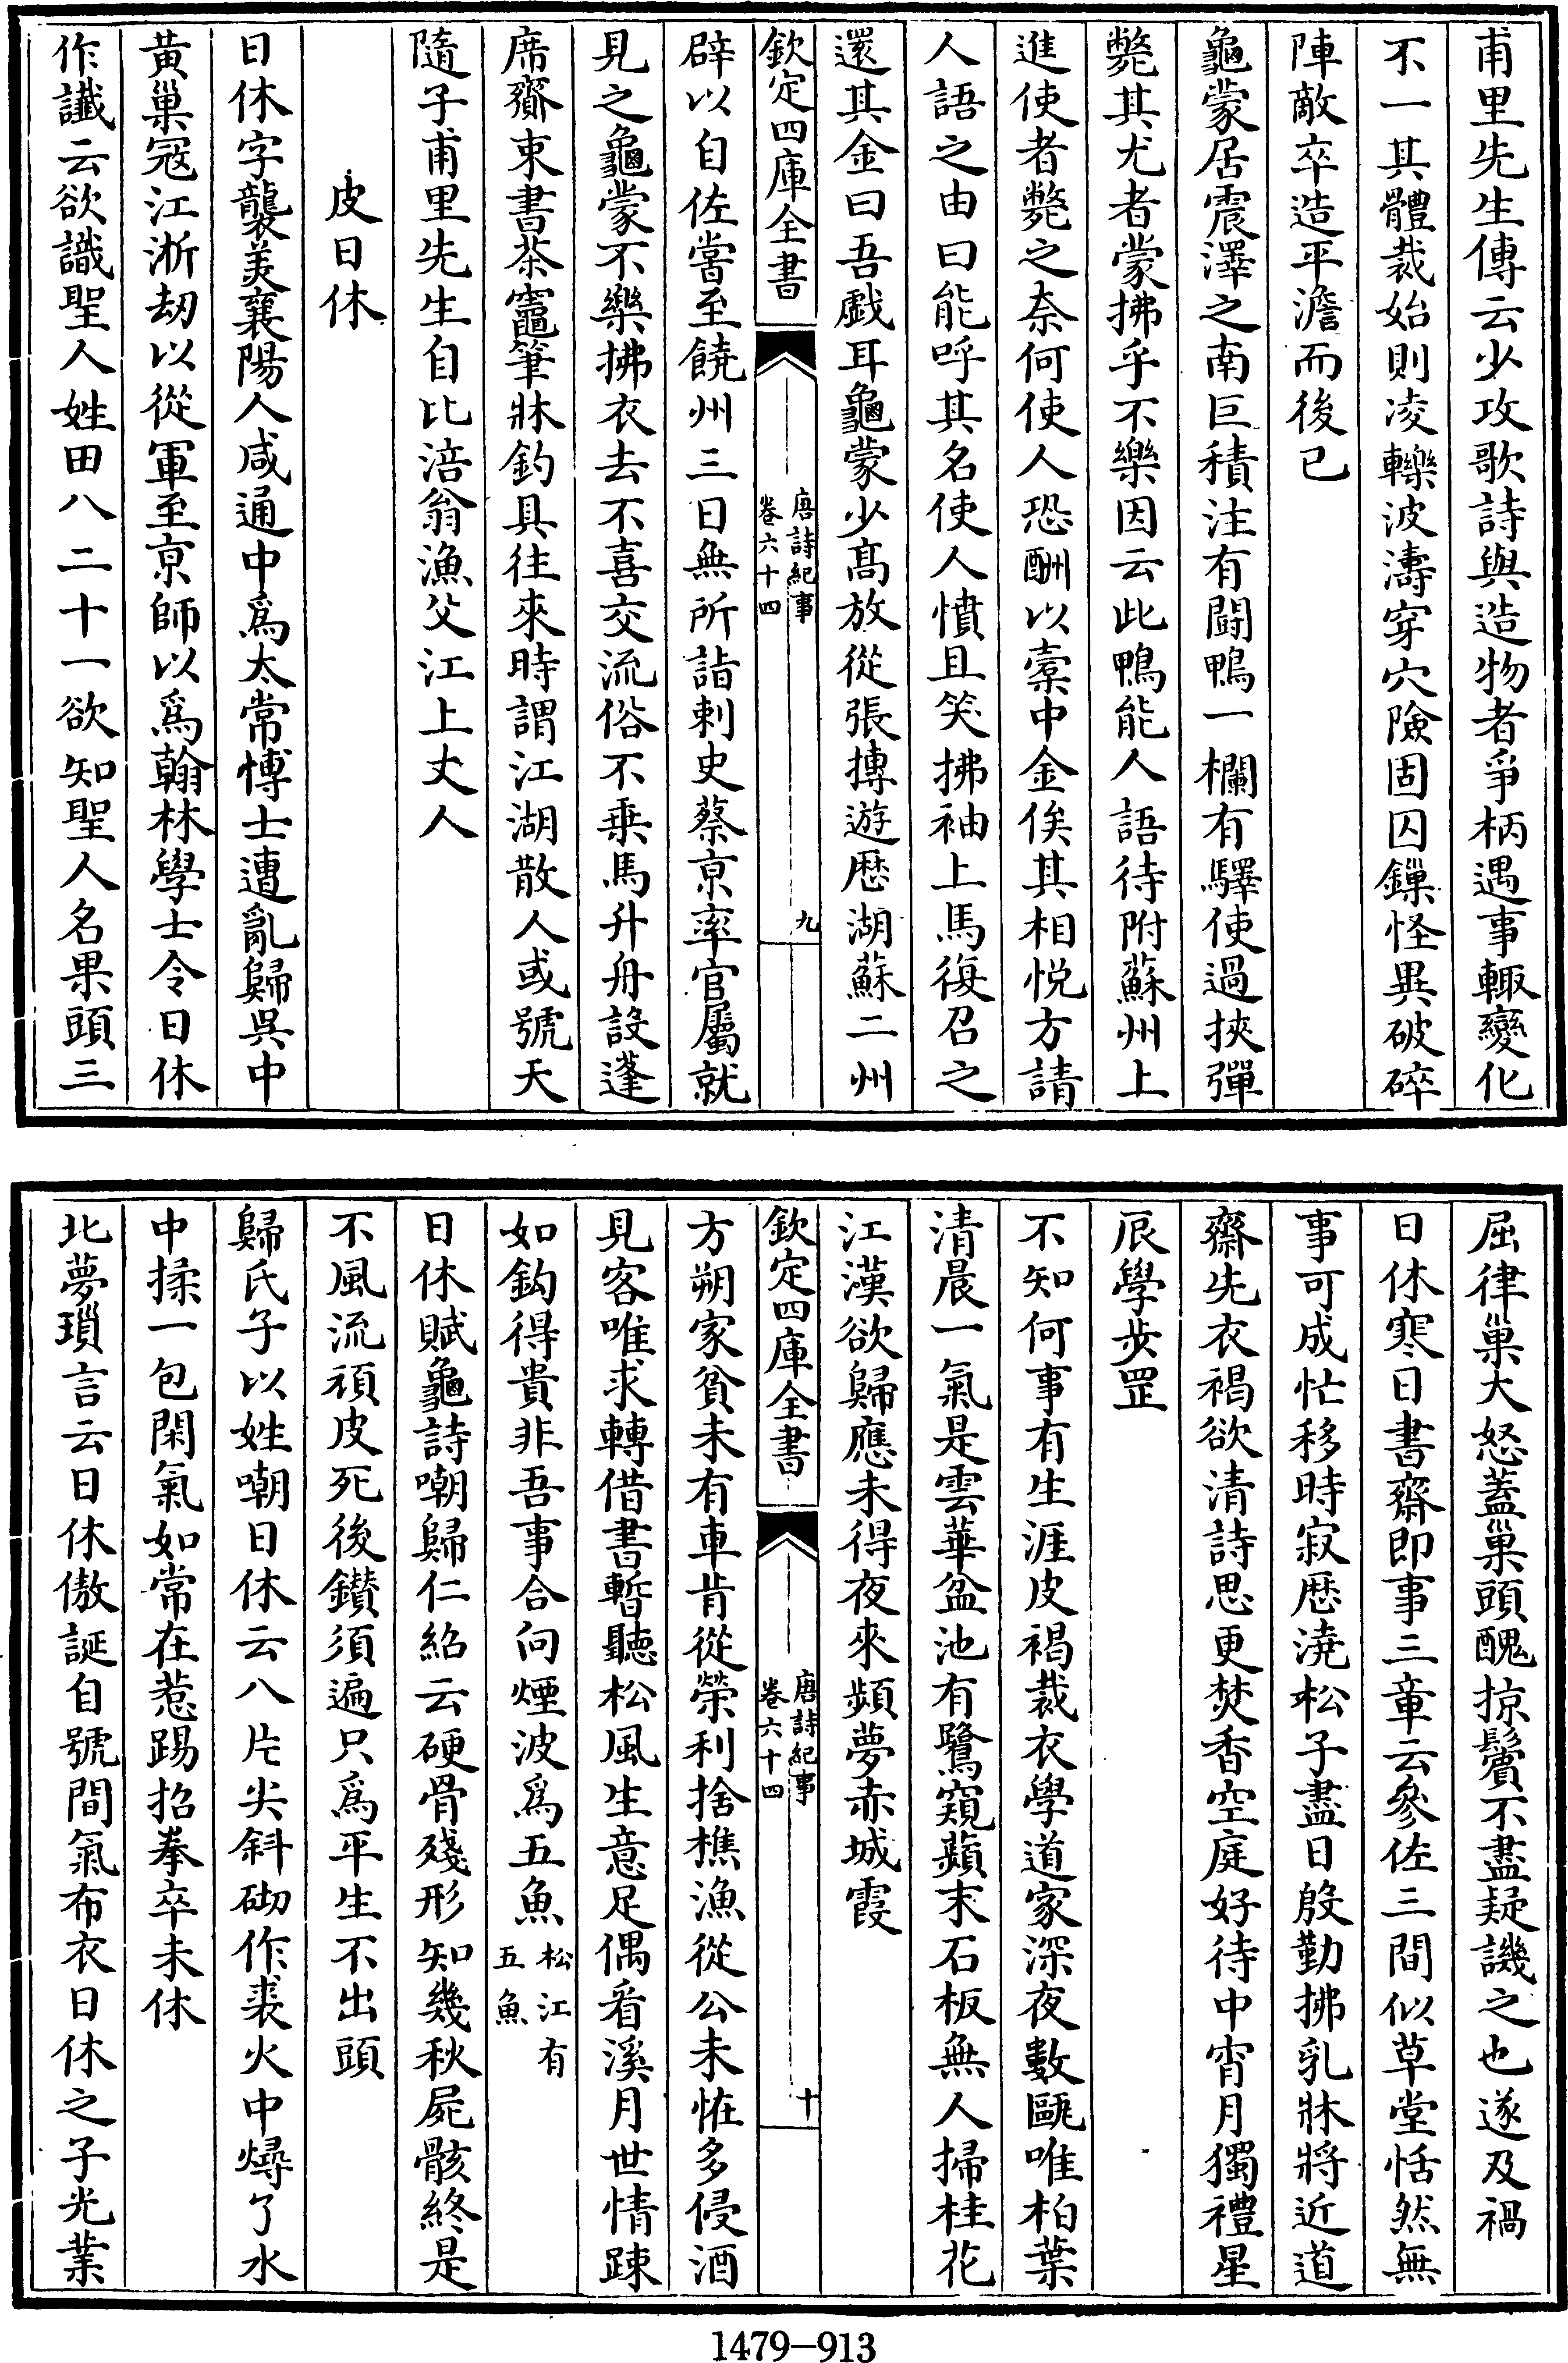 甫里先生傳云少攻歌詩與造物者爭柄遇事輙變化
不一其體裁始則凌轢波濤穿穴險固囚鏁怪異破碎
陣敵卒造平澹而後已
龜蒙居震澤之南巨積注有鬬鴨一欄有驛使過挾彈
斃其尤者蒙拂乎不樂因云此鴨能人語待附蘇州上
進使者斃之奈何使人恐酬以槖中金俟其相悦方請
人語之由曰能呼其名使人憤且笑拂袖上馬復召之
還其金曰吾戯耳龜蒙少髙放從張摶遊歴湖蘇二州
欽定四庫全書
唐詩紀事
卷六十四
九
辟以自佐嘗至饒州三日無所詣刺史蔡京率官屬就
見之龜蒙不樂拂衣去不喜交流俗不乗馬升舟設蓬
席齎束書茶竈筆牀釣具往來時謂江湖散人或號天
隨子甫里先生自比涪翁漁父江上丈人
皮日休
日休字襲美襄陽人咸通中爲太常博士遭亂歸吳中
黃巢冦江淛刼以從軍至京師以爲翰林學士令日休
作讖云欲識聖人姓田八二十一欲知聖人名果頭三
屈律巢大怒蓋巢頭醜掠鬢不盡疑譏之也遂及禍
日休寒日書齋即事三章云參佐三間似草堂恬然無
事可成忙移時寂歴澆松子盡日殷勤拂乳牀將近道
齋先衣褐欲清詩思更焚香空庭好待中宵月獨禮星
辰學步罡
不知何事有生涯皮褐裁衣學道家深夜數甌唯柏葉
清晨一氣是雲華盆池有鷺窺蘋末石板無人掃桂花
江漢欲歸應未得夜來頻夢赤城霞
欽定四庫全書
唐詩紀事
卷六十四
十
方朔家貧未有車肯從榮利捨樵漁從公未恠多侵酒
見客唯求轉借書暫聽松風生意足偶看溪月世情踈
如鈎得貴非吾事合向煙波爲五魚松江有五魚
日休賦龜詩嘲歸仁紹云硬骨殘形知幾秋屍骸終是
不風流頑皮死後鑚須遍只爲平生不出頭
歸氏子以姓嘲日休云八片尖斜砌作裘火中燖了水
中揉一包閑氣如常在惹踢招拳卒未休
北夢瑣言云日休傲誕自號間氣布衣日休之子光業
1479－913